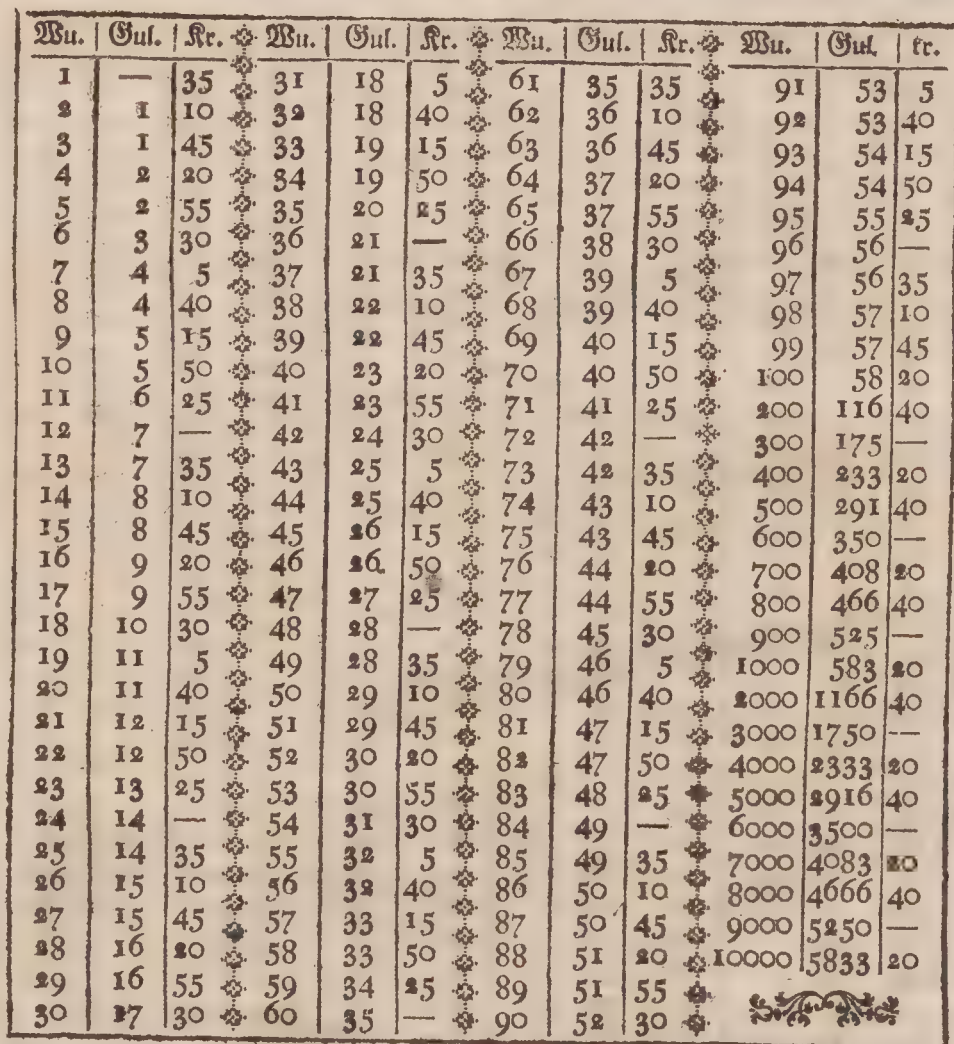 Wu. Gul. Kr. Wu. Gul. Kr. Wu. Gul. Kr. Wu. Gul. kr.
1 — 35 31 18 5 61 35 35 91 53 5
2 1 10 32 18 40 62 36 10 92 53 40
3 1 45 33 19 15 63 36 45 93 54 15
4 2 20 34 19 50 64 37 20 94 54 50
5 2 55 35 20 25 65 37 55 95 55 25
6 3 30 36 21 — 66 38 30 96 56 —
7 4 5 37 21 35 67 39 5 97 56 35
8 4 40 38 22 10 68 39 40 98 57 10
9 5 15 39 22 45 69 40 15 99 57 45
10 5 50 40 23 20 70 40 50 100 58 20
11 6 25 41 23 55 71 41 25 200 116 40
12 7 — 42 24 30 72 42 — 300 175 —
13 7 35 43 25 5 73 42 35 400 233 20
14 8 10 44 25 40 74 43 10 500 291 40
15 8 45 45 26 15 75 43 45 600 350 —
16 9 20 46 26 50 76 44 20 700 408 20
17 9 55 47 27 25 77 44 55 800 466 40
18 10 30 48 28 — 78 45 30 900 525 —
19 11 5 49 28 35 79 46 5 1000 583 20
20 11 40 50 29 10 80 46 40 2000 1166 40
21 12 15 51 29 45 81 47 15 3000 1750 —
22 12 50 52 30 20 82 47 50 4000 2333 20
23 13 25 53 30 55 83 48 25 5000 2916 40
24 14 — 54 31 30 84 49 — 6000 3500 —
25 14 35 55 32 5 85 49 35 7000 4083 20
26 15 10 56 32 40 86 50 10 8000 4666 40
27 15 45 57 33 15 87 50 45 9000 5250 —
28 16 20 58 33 50 88 51 20 10000 5833 20
29 16 55 59 34 25 89 51 55
30 17 30 60 35 — 90 52 30